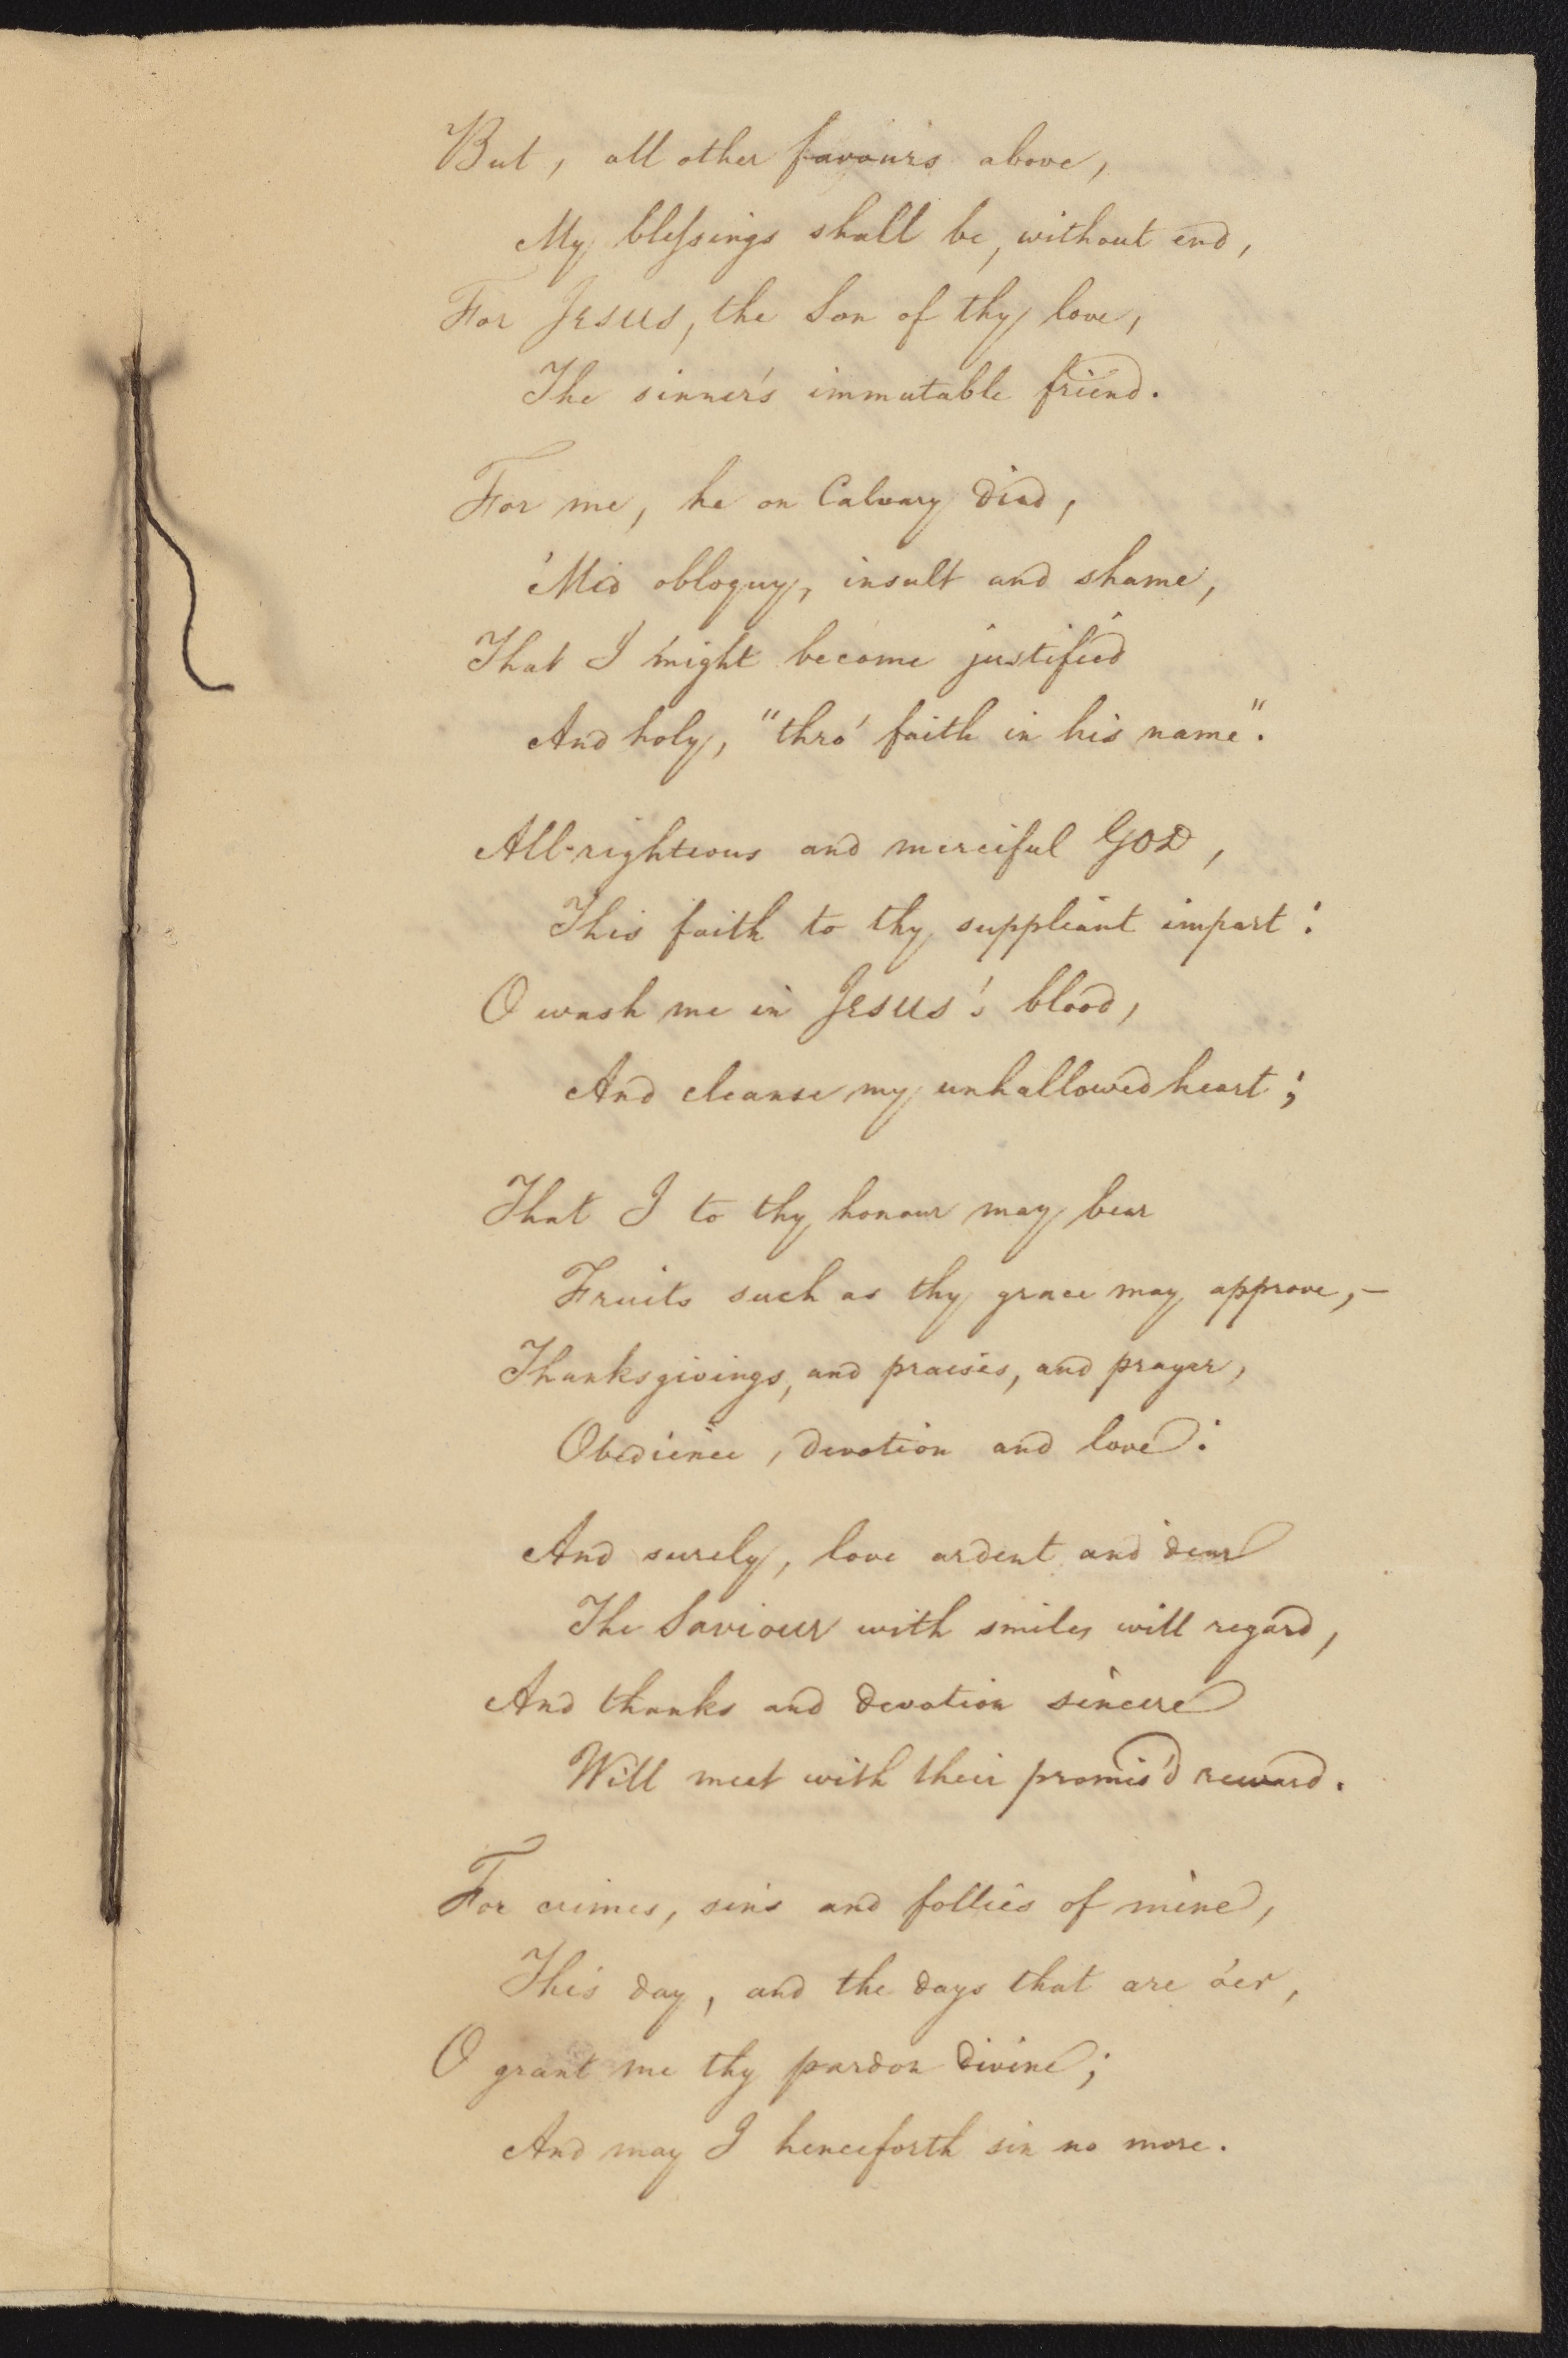 But, all other favours above,
My blessings shall be, without end,
For Jesus, the Son of thy love,
The sinner's immutable friend.
For me, he on Calvary died,
'Mid obloquy, insult and shame,
That I might become justified
And holy, "thro' faith in his name".
All-righteous and merciful GOD,
This faith to thy suppliant impart:
O wash me in Jesus's blood,
And cleanse my unhallowed heart;
That I to thy honour may bear
Fruits such as thy grace may approve,—
Thanksgivings, and praises, and prayer,
Obedience, devotion and love:
And surely, love ardent and dear
The Saviour with smiles will regard,
And thanks and devotion sincere
Will meet with their promis'd reward.
For crimes, sins and follies of mine,
This day, and the days that are o'er,
O grant me thy pardon divine;
And may I henceforth sin no more.